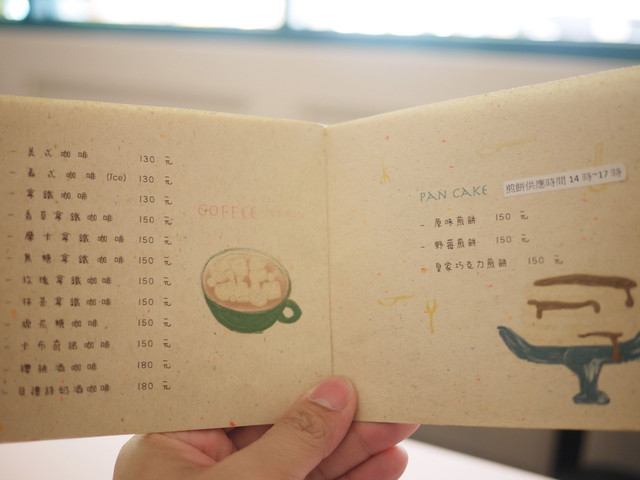 - 美式咖啡 130 元
- 美式咖啡 (Ice) 130 元
- 拿鐵咖啡 130 元
- 香草拿鐵咖啡 150 元
- 摩卡拿鐵咖啡 150 元
- 焦糖拿鐵咖啡 150 元
- 玫瑰拿鐵咖啡 150 元
- 抹茶拿鐵咖啡 150 元
- 糖咖啡 150 元
- 卡布奇諾咖啡 150 元
- 櫻桃酒咖啡 180 元
- 貝禮詩奶酒咖啡 180 元
COFFEE
PAN CAKE
煎餅供應時間 14 時~17 時
- 原味煎餅 150 元
- 野莓煎餅 150 元
- 皇家巧克力煎餅 150 元